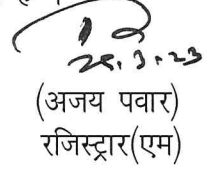 25.3.23
(अजय पवार)
रजिस्ट्रार(एम)